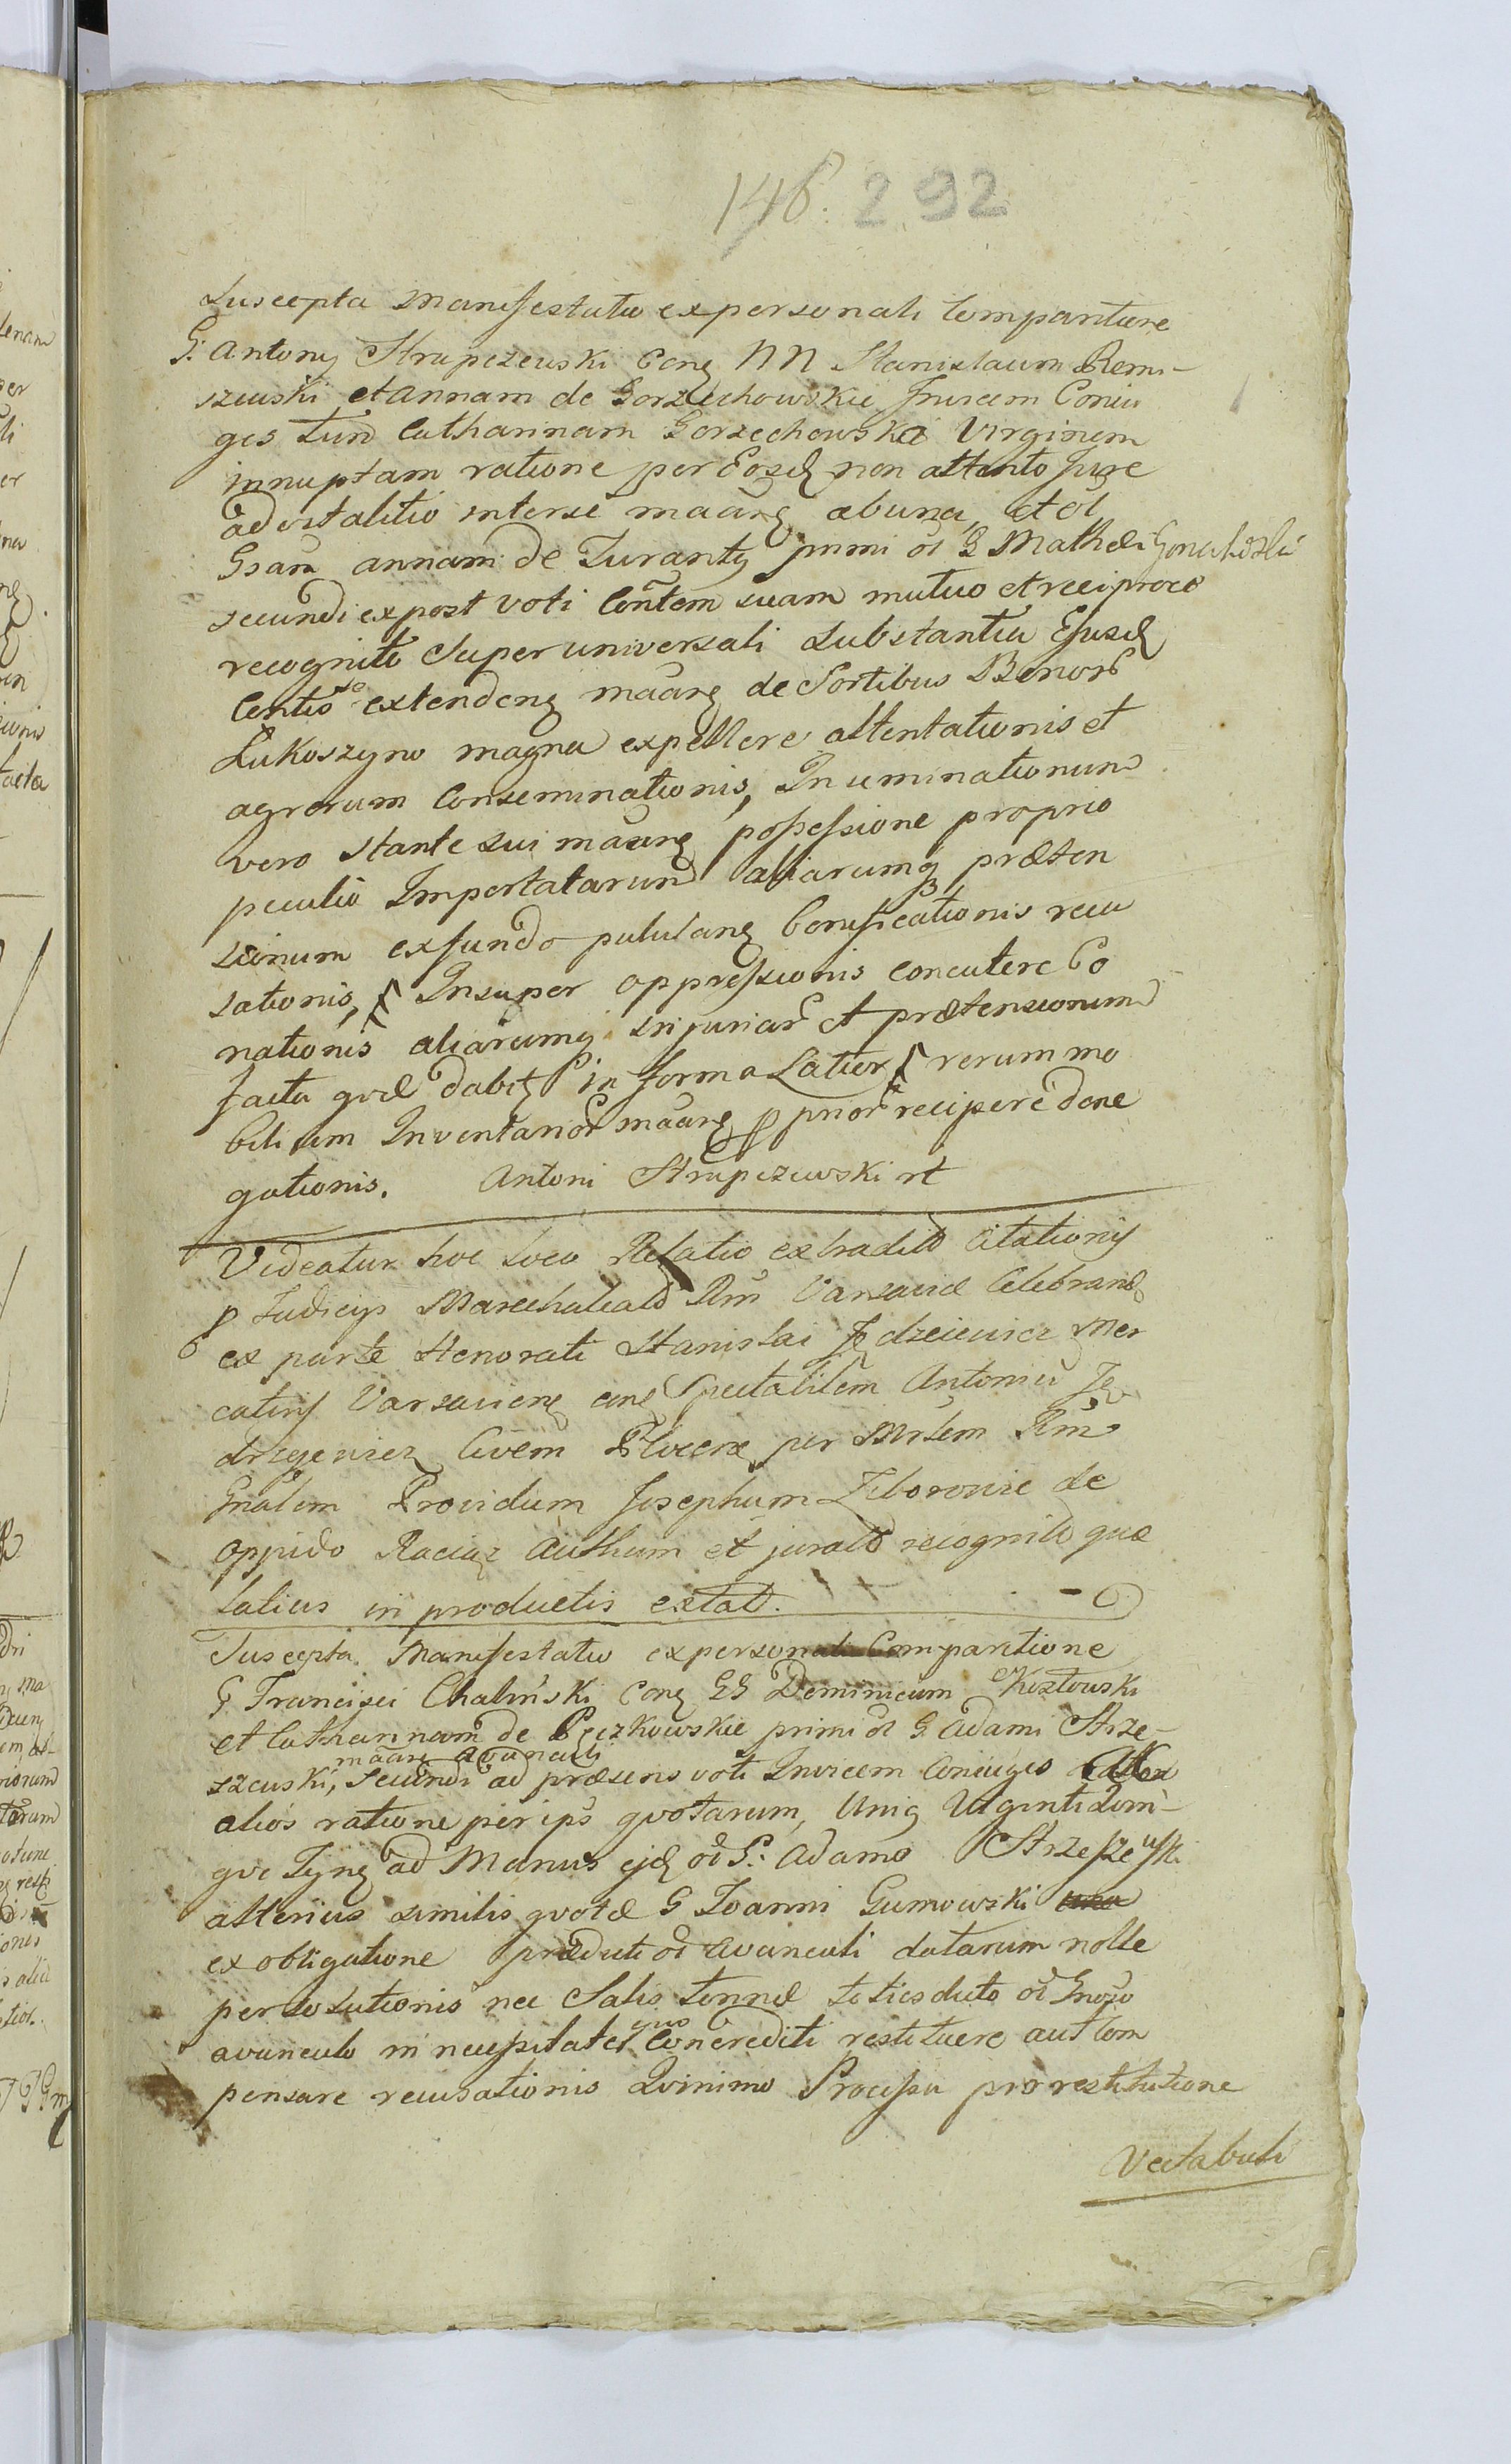 148. 292
Suscepta Manifestatio ex personali Comparitione
G: Antonij Strupczewski Conq NN Stanislaum Rem-
szewski et Annam de Gorzechowskie Invicem Coniu
ges tum Catharinam Gorzechowska Virginem
innuptam ratione per Eosd non attento Jure
advitalitio inter se maanq ab una, et ol
Gsam Annam de Turanty primi ol G Mathei
secundi ex post voti Contem suam mutuo et reciproce
recognito Super universali Substantia Ejusd
Contis extendenq maanq de Sortibus Bonor
Lukoszyno magna expellere attentationis et
agrorum Conseminationis, Inseminationum
vero stante sui maanq possessione proprio
peculio Importatarum aliarumq præten
sionum ex fundo pululanq bonificationis recu
sationis, Insuper oppressionis concutere Co
nationis aliarumq injuriar et prætensionum
facta qvæ dabit in forma Latior rerum mo
bilium Inventarior maanq p prior recipere dene
gationis. Antoni Strupczewski rt
Videatur hoc loco Relatio extradit Citationis
p Judicijs Marechalcald Rni Varsaviæ Celebrand
ex parte Honorati Stanislai Jędrzeiewicz Mer
catiris Varsavienq conq Spectabilem Antoniu Ję
drzejewicz Civem Plocenq per Mrlem Rni
Gnalem Providum Josephum Ziborowic de
oppido Raciąz Authum et jurato recognito quæ
latius in productis extat.
Suscepta Manifestatio ex personali Comparitione
G Francisci Chaliński Conq GG Dominicum Kozłowski
et Catharinam de Pęczkowskie primi ol G. Adami Strze-
maanq avunculi
szewski, secundi ad præsens voti Invicem Coniuges
alios ratione per ips qvotarum, Unig Viginti Qvin-
qve Tynq ad Manus ejd ol G: Adamo Strzeszewski
alterius similis qvotæ G Joanni Gumowski
ex obligatione prædicti ol avunculi datarum nolle
persolutionis nec Salis tonnæ toties dicto ol Gnoso
avunculo in necessitate suo Concrediti restituere aut Com
pensare recusationis Qvinimo Processu pro restitutione
Vectabuli